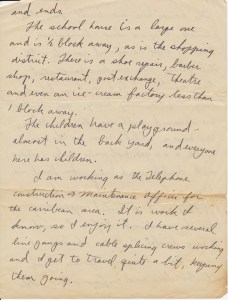 and ends.
The school house is a large one
and is ½ block away, as is the shopping
district. There is a shoe repair, barber
shop, restaurant, post exchange, theatre
and even an ice-cream factory less than
1 block away.
The children have a playground
almost in the back yard, and everyone
here has children.
I am working as the Telephone
construction & maintenance officer for
the carribean area. It is work I
know, so I enjoy it. I have several
line gangs and cable splicing crews working
and I get to travel quite a bit, keeping
them going.